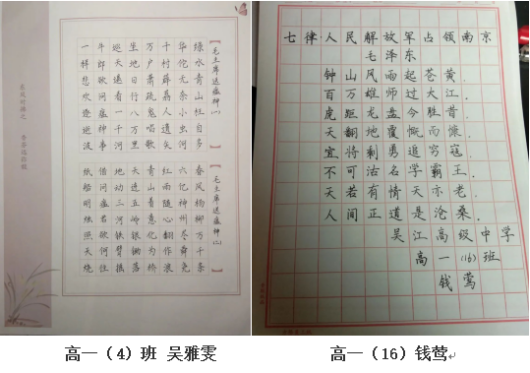 【毛主席送瘟神(一)】
绿水青山枉自多
华佗无奈小虫何
千村薜荔人遗矢
万户萧疏鬼唱歌
坐地日行八万里
巡天遥看一千河
牛郎欲问瘟神事
一样悲欢逐逝波
【毛主席送瘟神(二)】
春风杨柳万千条
六亿神州尽舜尧
红雨随心翻作浪
青山着意化为桥
天连五岭银锄落
地动三河铁臂摇
借问瘟君欲何往
纸船明烛照天烧
七律人民解放军占领南京
毛泽东
钟山风雨起苍黄.
百万雄师过大江.
虎距龙盘今胜昔.
天翻地覆慨而慷.
宜将剩勇追穷寇.
不可沽名学霸王.
天若有情天亦老.
人间正道是沧桑.
吴江高级中学
高一(16)班
钱莺
高一（4）班 吴雅雯
高一（16）钱莺